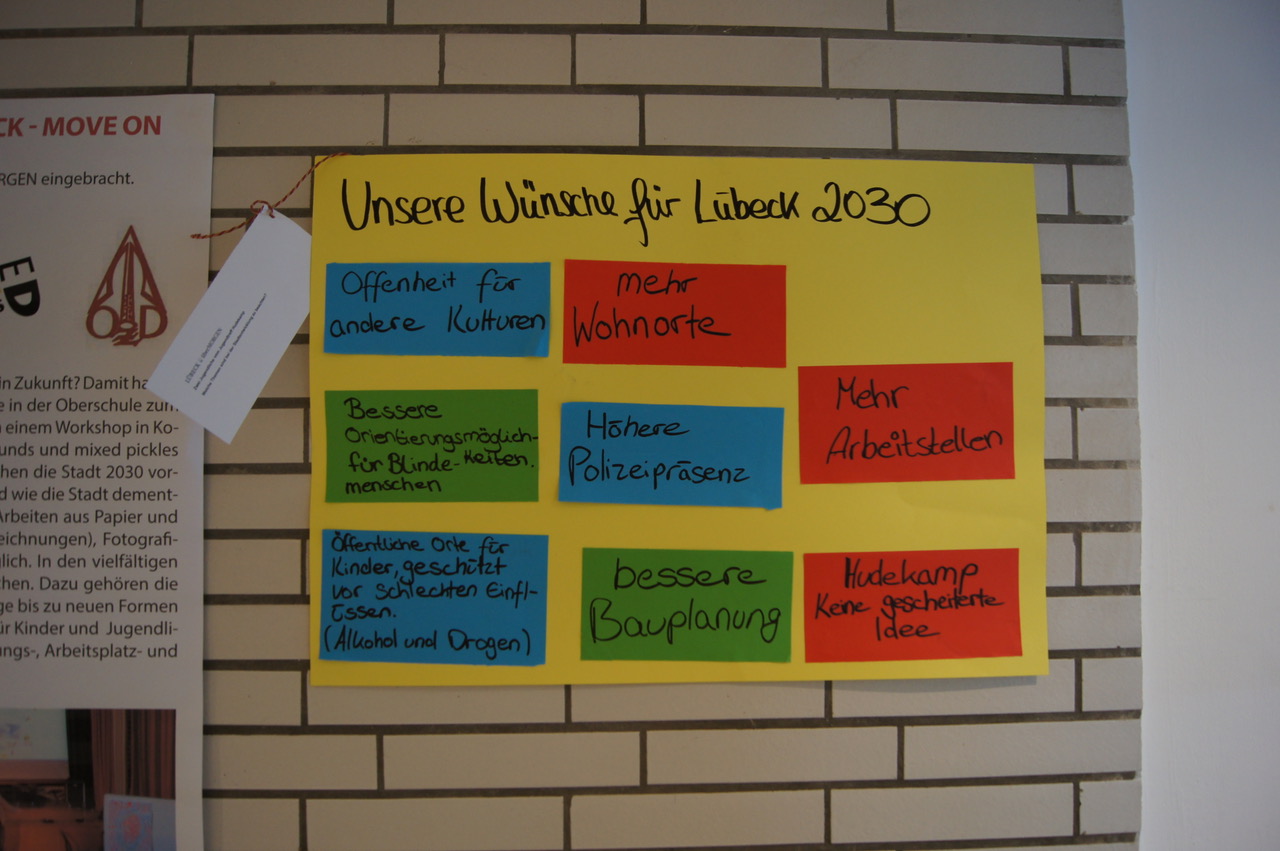 CK - MOVE ON
RGEN eingebracht.
ED
in Zukunft? Damit ha
e in der Oberschule zum
n einem Workshop in Ko-
unds und mixed pickles
chen die Stadt 2030 vor-
d wie die Stadt dement-
Arbeiten aus Papier und
eichnungen), Fotografi-
glich. In den vielfältigen
chen. Dazu gehören die
ge bis zu neuen Formen
ür Kinder und Jugendli-
ungs-, Arbeitsplatz- und
Unsere Wünsche für Lübeck 2030
Offenheit für
andere Kulturen
mehr
Wohnorte
Mehr
Arbeitstellen
Bessere
Orientierungsmöglich-
für Blinde- keiten.
menschen
Höhere
Polizeipräsenz
Öffentliche Orte für
Kinder, geschützt
vor schlechten Einfl-
üssen.
(Alkohol und Drogen)
bessere
Bauplanung
Hudekamp
Keine gescheiterte
Idee